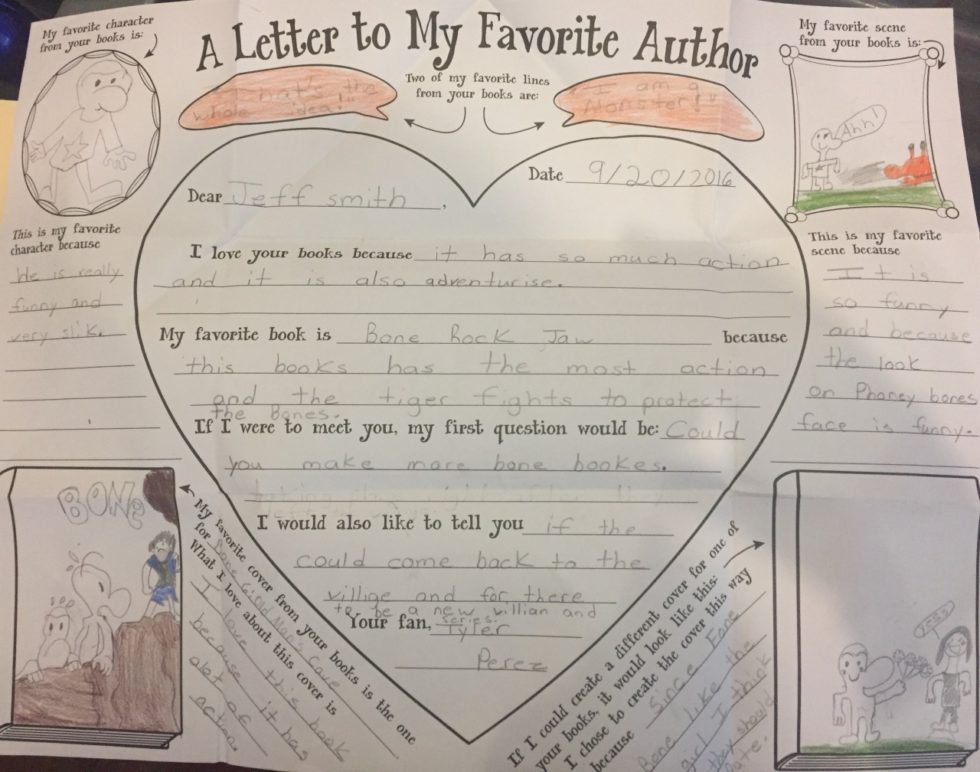 A Letter to My Favorite Author
My favorite character
from your books is:
Two of my favorite lines
from your books are:
"That's the
whole idea!"
"I am a
Monster!"
My favorite scene
from your books is:
Ahh!
This is my favorite
character because
He is really
funny and
very slik.
Date 9/20/2016
Dear Jeff smith,
I love your books because it has so much action
and it is also adventurise.
My favorite book is Bone Rock Jaw because
this books has the most action
and the tiger fights to protect
the Bones.
If I were to meet you, my first question would be: Could
you make more bone bookes.
I would also like to tell you if the
could come back to the
villige and for there
to be a new villian and
series.
Your fan, Tyler
Perez
This is my favorite
scene because
It is
so funny
and because
the look
on Phoney bones
face is funny.
BONE
My favorite cover from your books is the one
for Bone
What I love about this cover is
I love this book
because it has
alot of
action.
If I could create a different cover for one of
your books, it would look like this:
I chose to create the cover this way
because Since Fone
Bone like the
girl I think
they should
date.